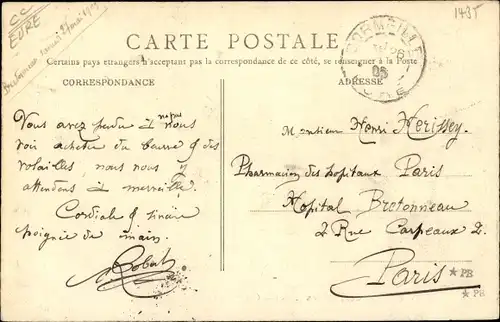 CC
EURE
143T
CARTE POSTALE
Certains pays étrangers n'acceptant pas la correspondance de ce côté, se renseigner à la Poste
CORRESPONDANCE
ADRESSE
CORMEILLE
26
05
EURE
Vous avez perdu à ne pas nous
voir acheter du beurre & des
volailles, nous nous y
attendons à merveille.
Cordiale & sincère
poignée de main.
Monsieur Henri Herissey.
Pharmacien des hopitaux Paris
Hopital Bretonneau
2 Rue Carpeaux 2.
Paris
PB
PB